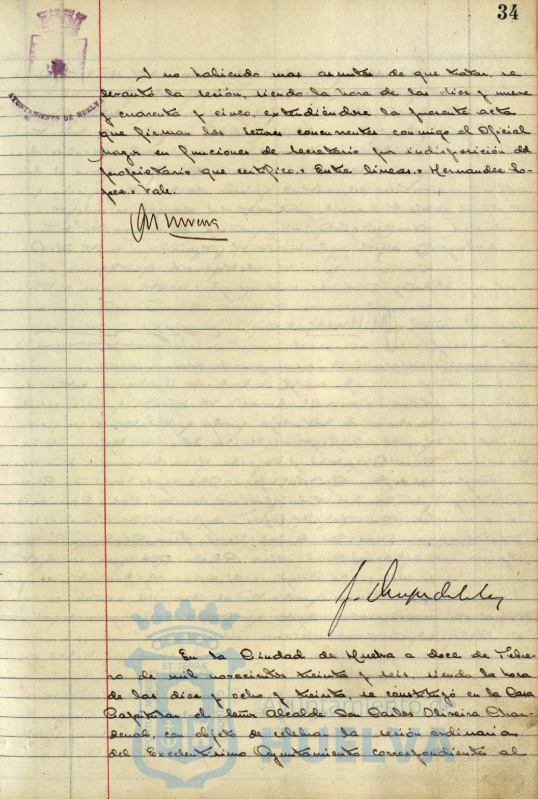 34
AYUNTAMIENTO DE HUELVA
Y no habiendo mas asuntos de que tratar, se
levantó la sesión, siendo la hora de las diez y nueve
y cuarenta y cinco, extendiéndose la presente acta
que firman los señores concurrentes conmigo el Oficial
mayor en funciones de Secretario por indisposición del
propietario que certifico. Entre lineas = Hernandez Lo-
pez = Vale.
En la Ciudad de Huelva a doce de Febre-
ro de mil novecientos treinta y seis, siendo la hora
de las diez y ocho y treinta, se constituyó en la Casa
Capitular el Señor Alcalde Don Carlos Oliveira
con objeto de celebrar la sesión ordinaria
del Excelentísimo Ayuntamiento correspondiente al
Ayuntamiento de
HUELVA